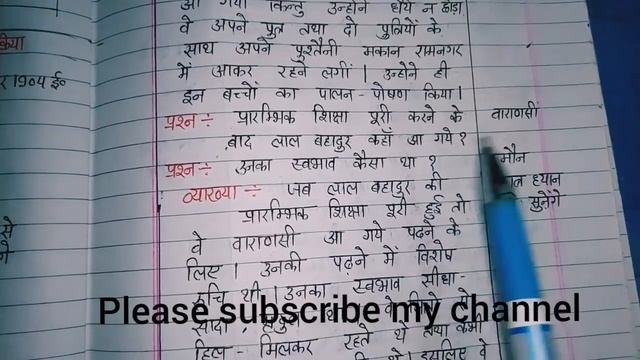 आ गया किन्तु उन्होने धैर्य न छोड़ा
वे अपने पुत्र तथा दो पुत्रियों के
साथ अपने पुश्तैनी मकान रामनगर
में आकर रहने लगीं । उन्होने ही
इन बच्चों का पालन - पोषण किया ।
प्रश्न ÷ प्रारम्भिक शिक्षा पूरी करने के
बाद लाल बहादुर कहाँ आ गये ?
प्रश्न ÷ उनका स्वभाव कैसा था ?
व्याख्या ÷ जब लाल बहादुर की
प्रारम्भिक शिक्षा पूरी हुई तो
वे वाराणसी आ गये पढ़ने के
लिए । उनकी पढ़ने में विशेष
रुचि थी । उनका स्वभाव सीधा -
सादा ,
हिल - मिलकर रहते थे तथा कभी
किया
र 1904 ई०
से
वाराणसी
मौन
ध्यान
सुनेंगे
Please subscribe my channel